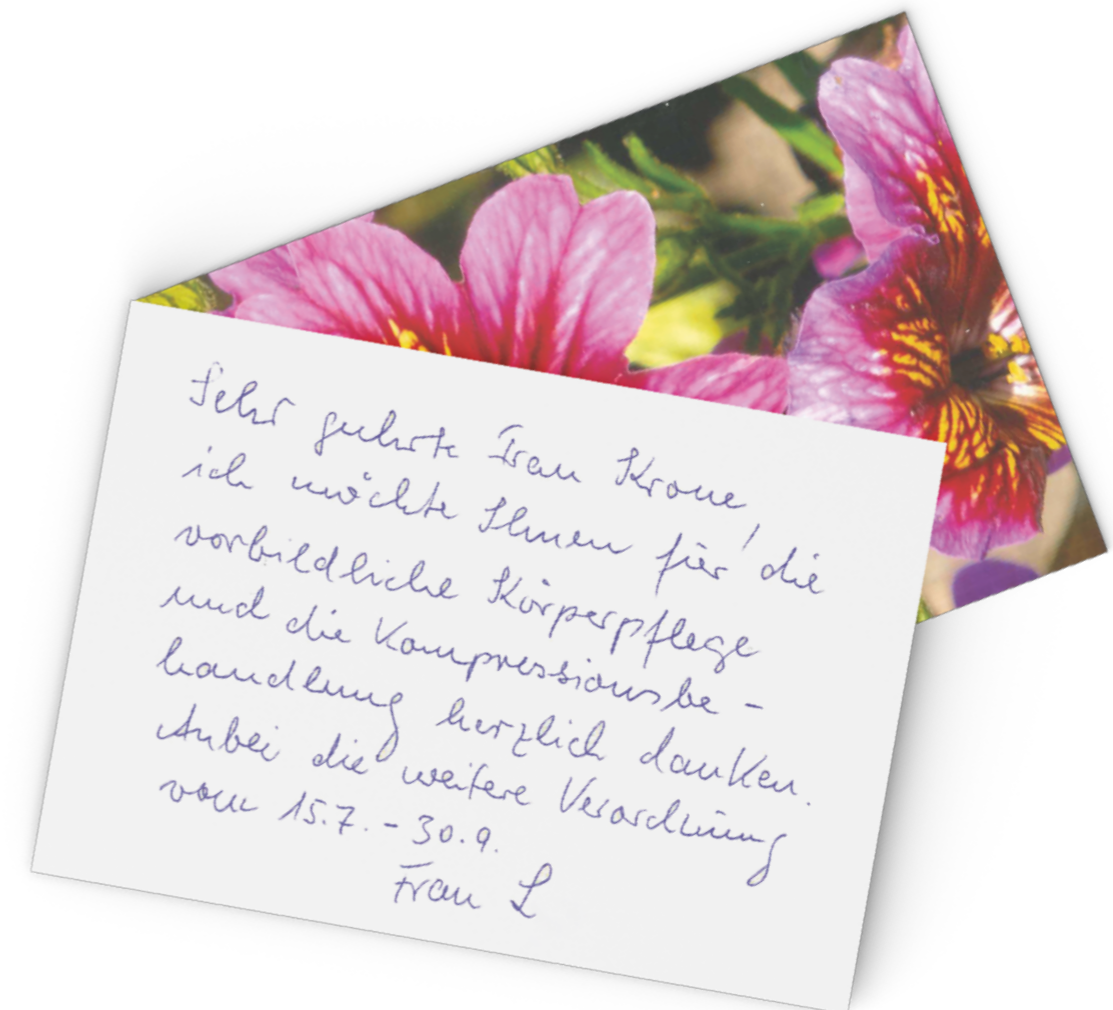 Sehr geehrte Frau Krone,
ich möchte Ihnen für die
vorbildliche Körperpflege
und die Kompressionsbe-
handlung herzlich danken.
Anbei die weitere Verordnung
vom 15.7. - 30.9.
Frau L